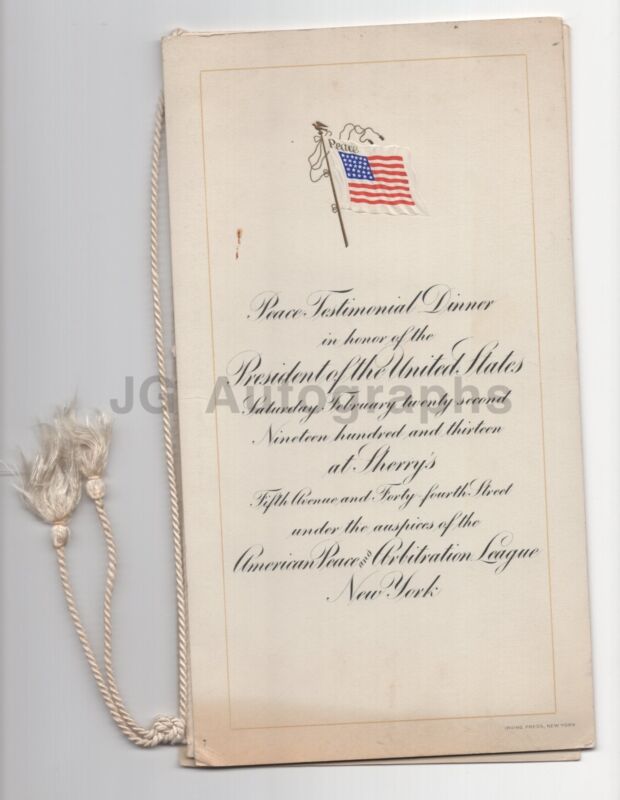 Peace
Peace Testimonial Dinner
in honor of the
President of the United States
Saturday, February twenty second
Nineteen hundred and thirteen
at Sherry's
Fifth Avenue and Forty-fourth Street
under the auspices of the
American Peace and Arbitration League
New York
IRVING PRESS, NEW YORK
JG Autographs